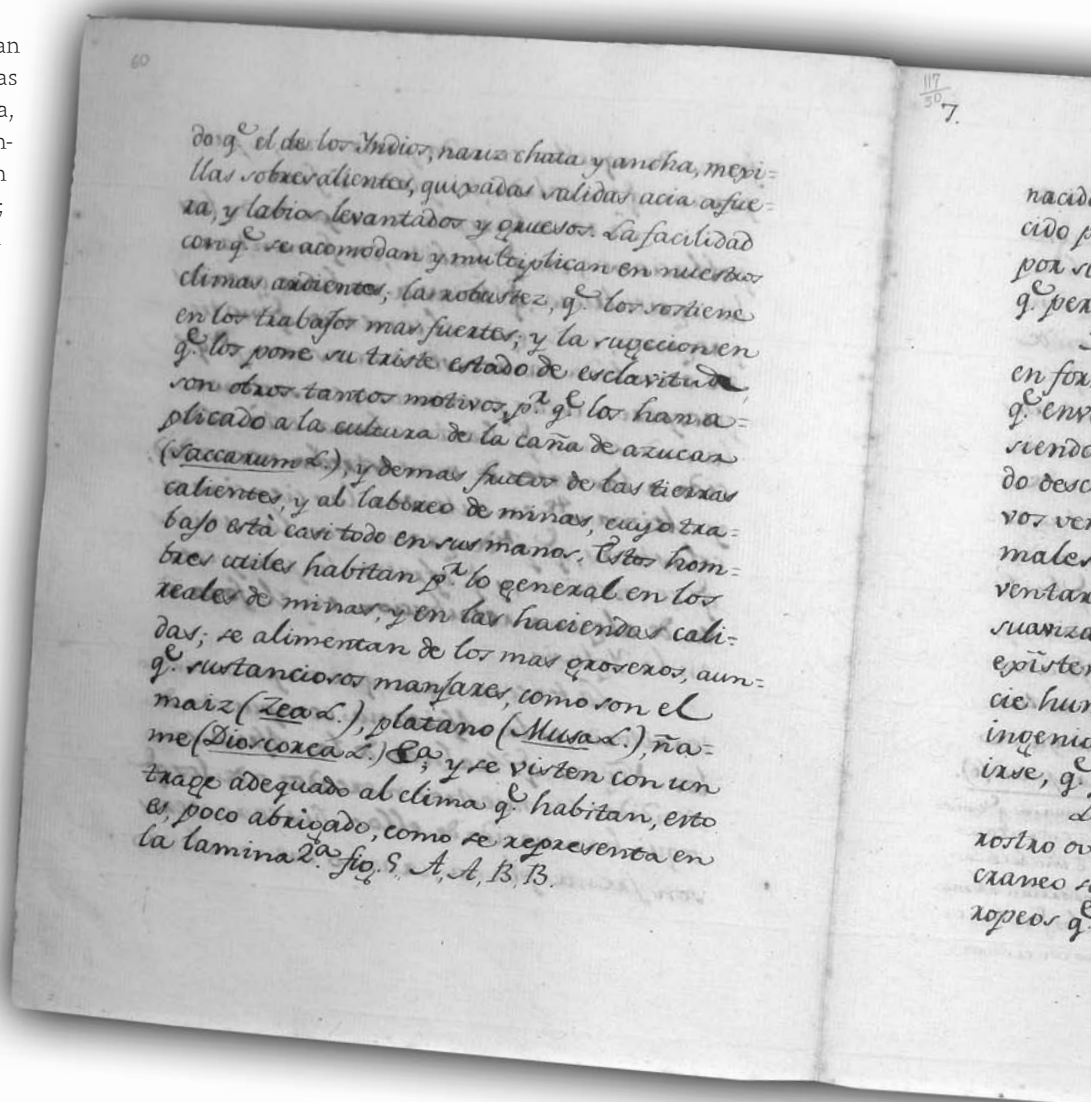 an
as
a,
n-
n
;
60
do q.e el de los Yndios, nariz chata y ancha, mexi=
llas sobresalientes, quixadas salidas acia afue=
ra, y labios levantados y gruesos. La facilidad
con q.e se acomodan y multiplican en nuestros
climas ardientes; la robustez, q.e los sostiene
en los trabajos mas fuertes; y la sugecion en
q.e los pone su triste estado de esclavitud,
son otros tantos motivos, p.a q.e los han a=
plicado a la cultura de la caña de azucar
(Saccarum L.), y demas frutos de las tierras
calientes, y al laboreo de minas, cuyo tra=
bajo està casi todo en sus manos. Estos hom=
bres utiles habitan p.r lo general en los
reales de minas, y en las haciendas cali=
das; se alimentan de los mas groseros, aun=
q.e sustanciosos manjares, como son el
maiz (Zea L.), platano (Musa L.), ña=
me (Dioscorea L.) &a; y se visten con un
trage adequado al clima q.e habitan, esto
es, poco abrigado, como se representa en
la lamina 2.a fig. 5. A, A, B, B.
117
50
7.
nacid
cido p
por su
q.e per
en for
q.e env
siendo
do desc
vos ver
males
ventar
suariza
existen
cie hum
ingenio
irse, q.e
L
rostro ov
craneo se
ropeos q.e